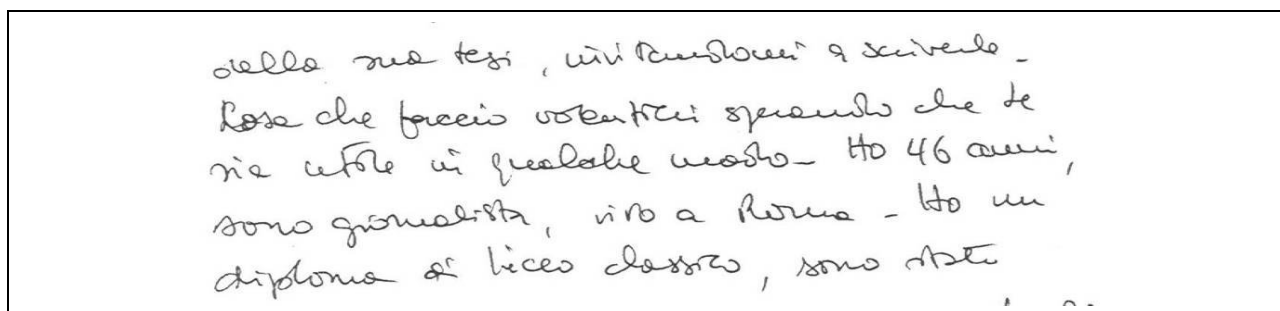 della sua tesi, invitandomi a scriverle -
Cosa che faccio volentieri sperando che le
sia utile in qualche modo - Ho 46 anni,
sono giornalista, vivo a Roma - Ho un
diploma di liceo classico, sono stata